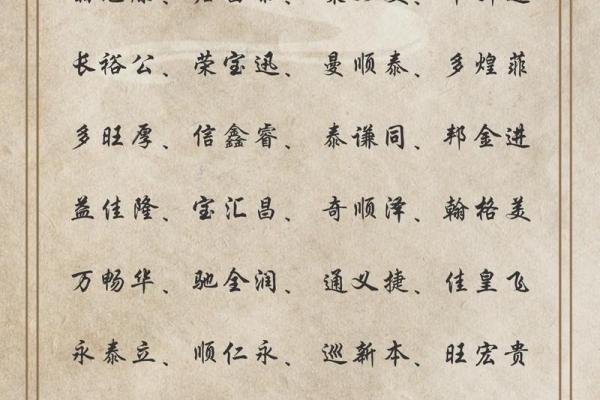 长裕公、荣宝迅、曼顺泰、多煌菲
多旺厚、信鑫睿、泰谦同、邦金进
益佳隆、宝汇昌、奇顺泽、翰格美
万畅华、驰全润、通义捷、佳皇飞
永泰立、顺仁永、巡新本、旺宏贵